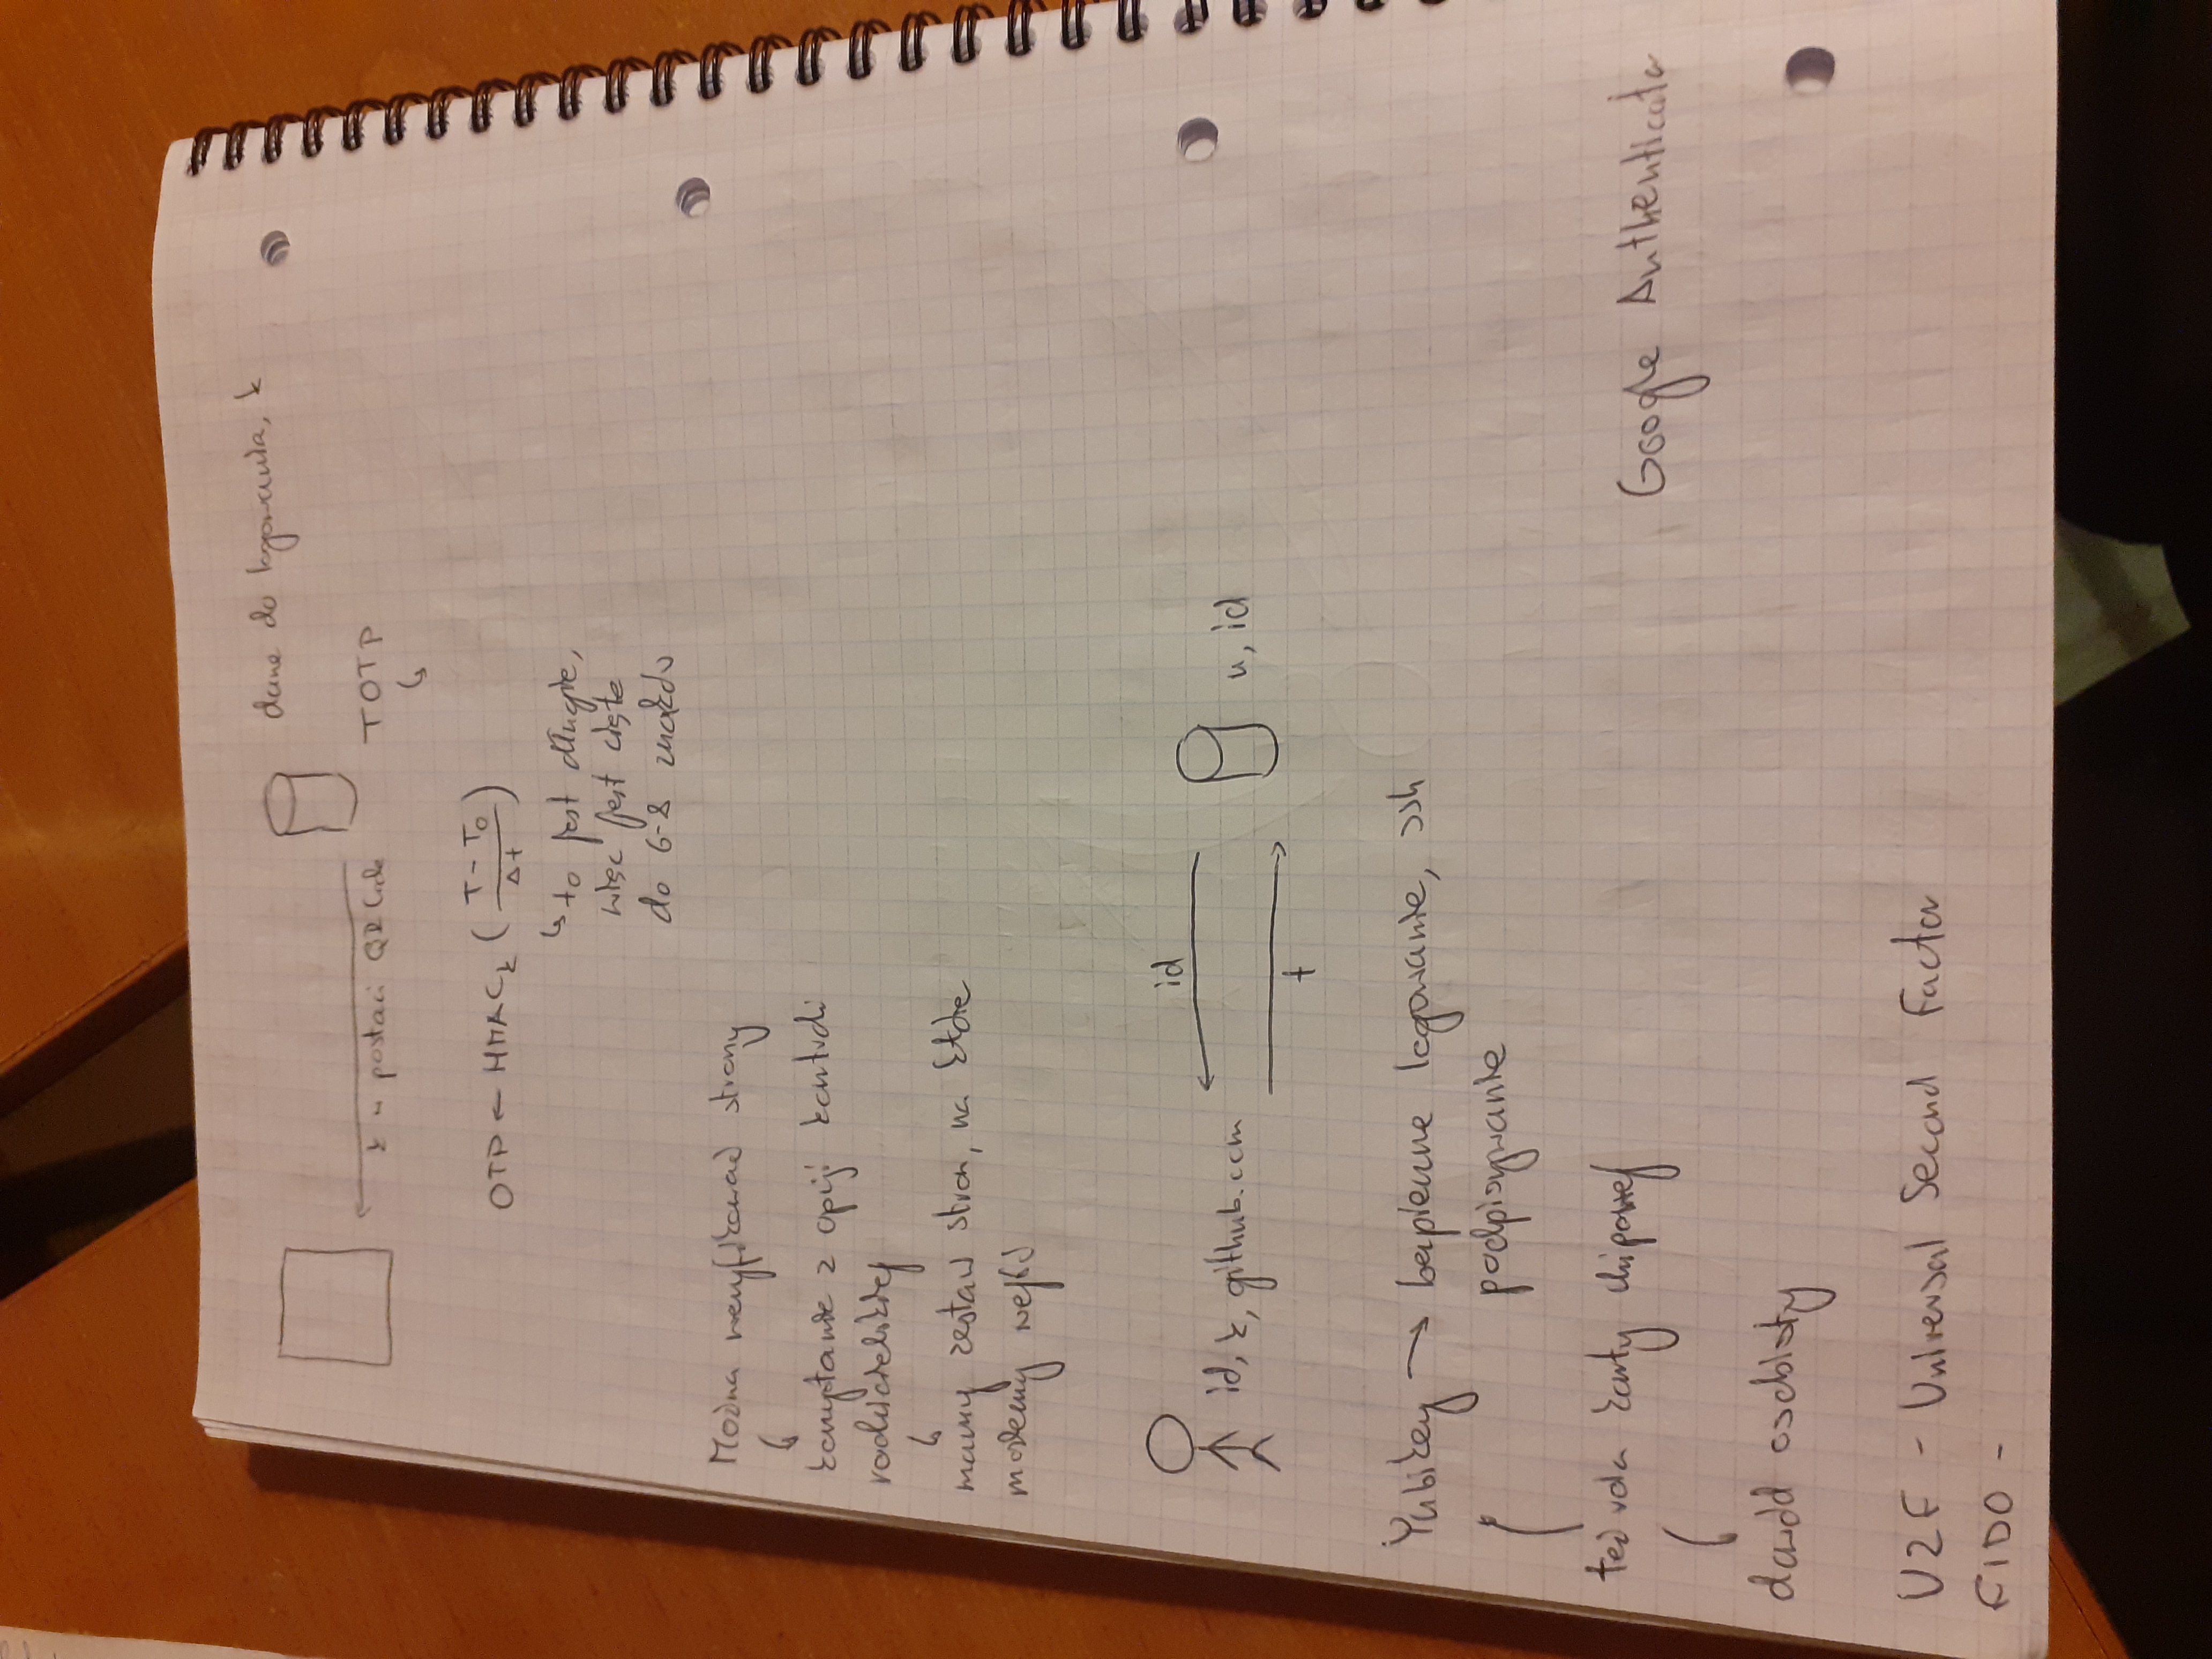 dane do logowania, k
k w postaci QR Code
TOTP
OTP ← HMAC_k ( (T - T_0) / Δt )
↳ to jest długie,
więc jest cięte
do 6-8 znaków
Można weryfikować strony
↳
korzystanie z opcji kontroli
rodzicielskiej
↳
mamy zestaw stron, na które
możemy wejść
id
id, k, github.com
u, id
t
Yubikey → bezpieczne logowanie, ssh
podpisywanie
też rola karty chipowej
Google Authenticator
dowód osobisty
U2F - Universal Second Factor
FIDO -